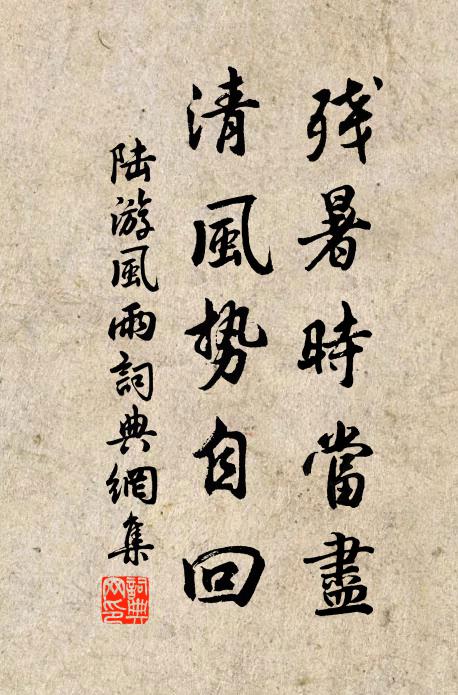 残暑時當盡
清風勢自回
陆游風雨詞典網集
詞典網印